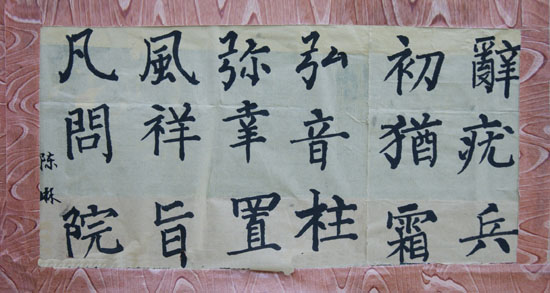 辭疣兵
初猶霜
弘音柱
弥幸置
風祥旨
凡問院
陈